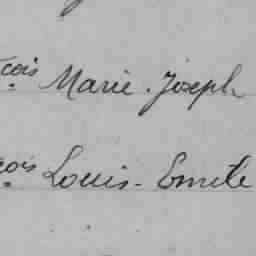 çois Marie-Joseph
çois Louis-Emile